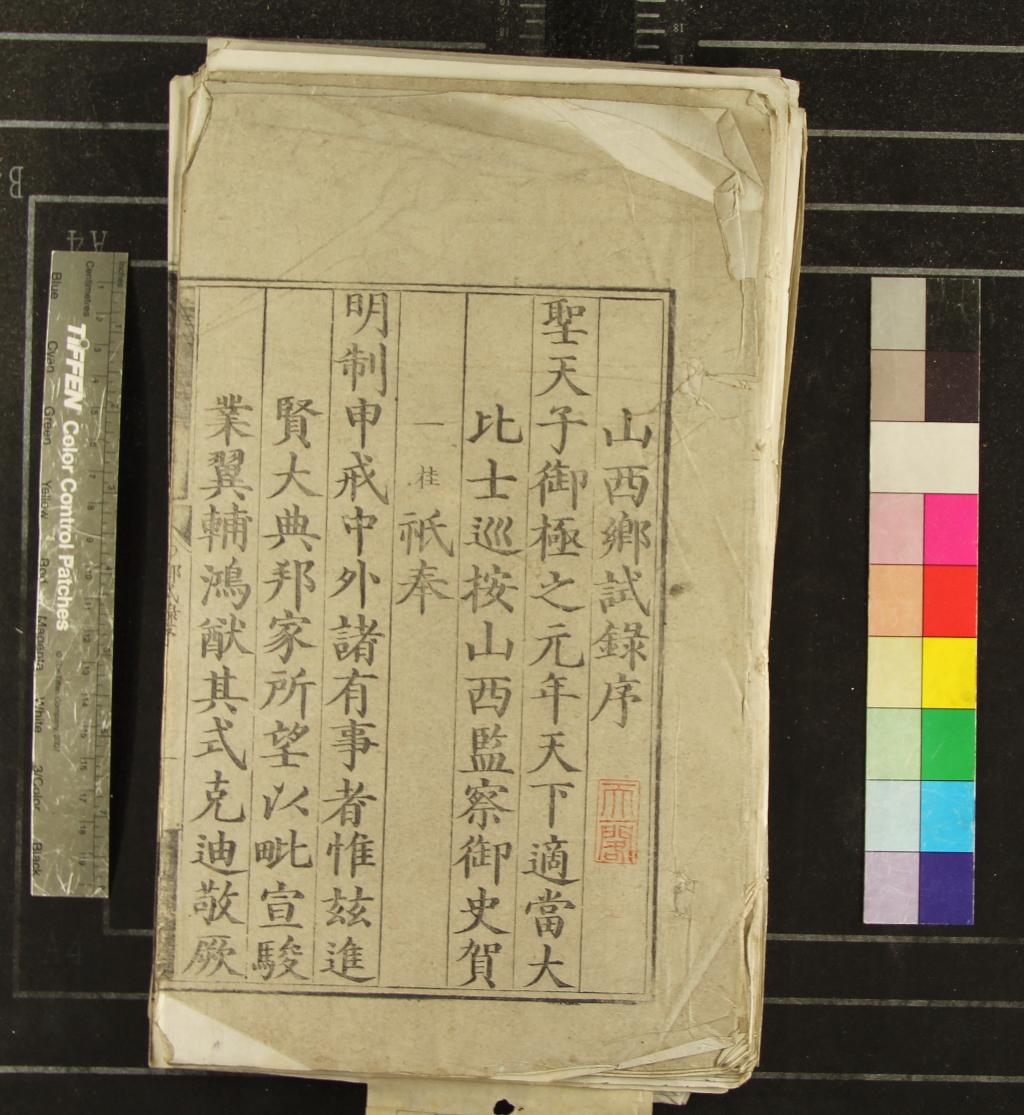 山西鄉試錄序
聖天子御極之元年天下適當大
比士巡按山西監察御史賀
一桂祇奉
明制申戒中外諸有事者惟茲進
賢大典邦家所望以毗宣駿
業翼輔鴻猷其式克迪敬厥
天一閣
TIFFEN Color Control Patches
Blue
Cyan
Green
Yellow
Red
Magenta
White
3/Color
Black
Centimetres
Inches
A4
B